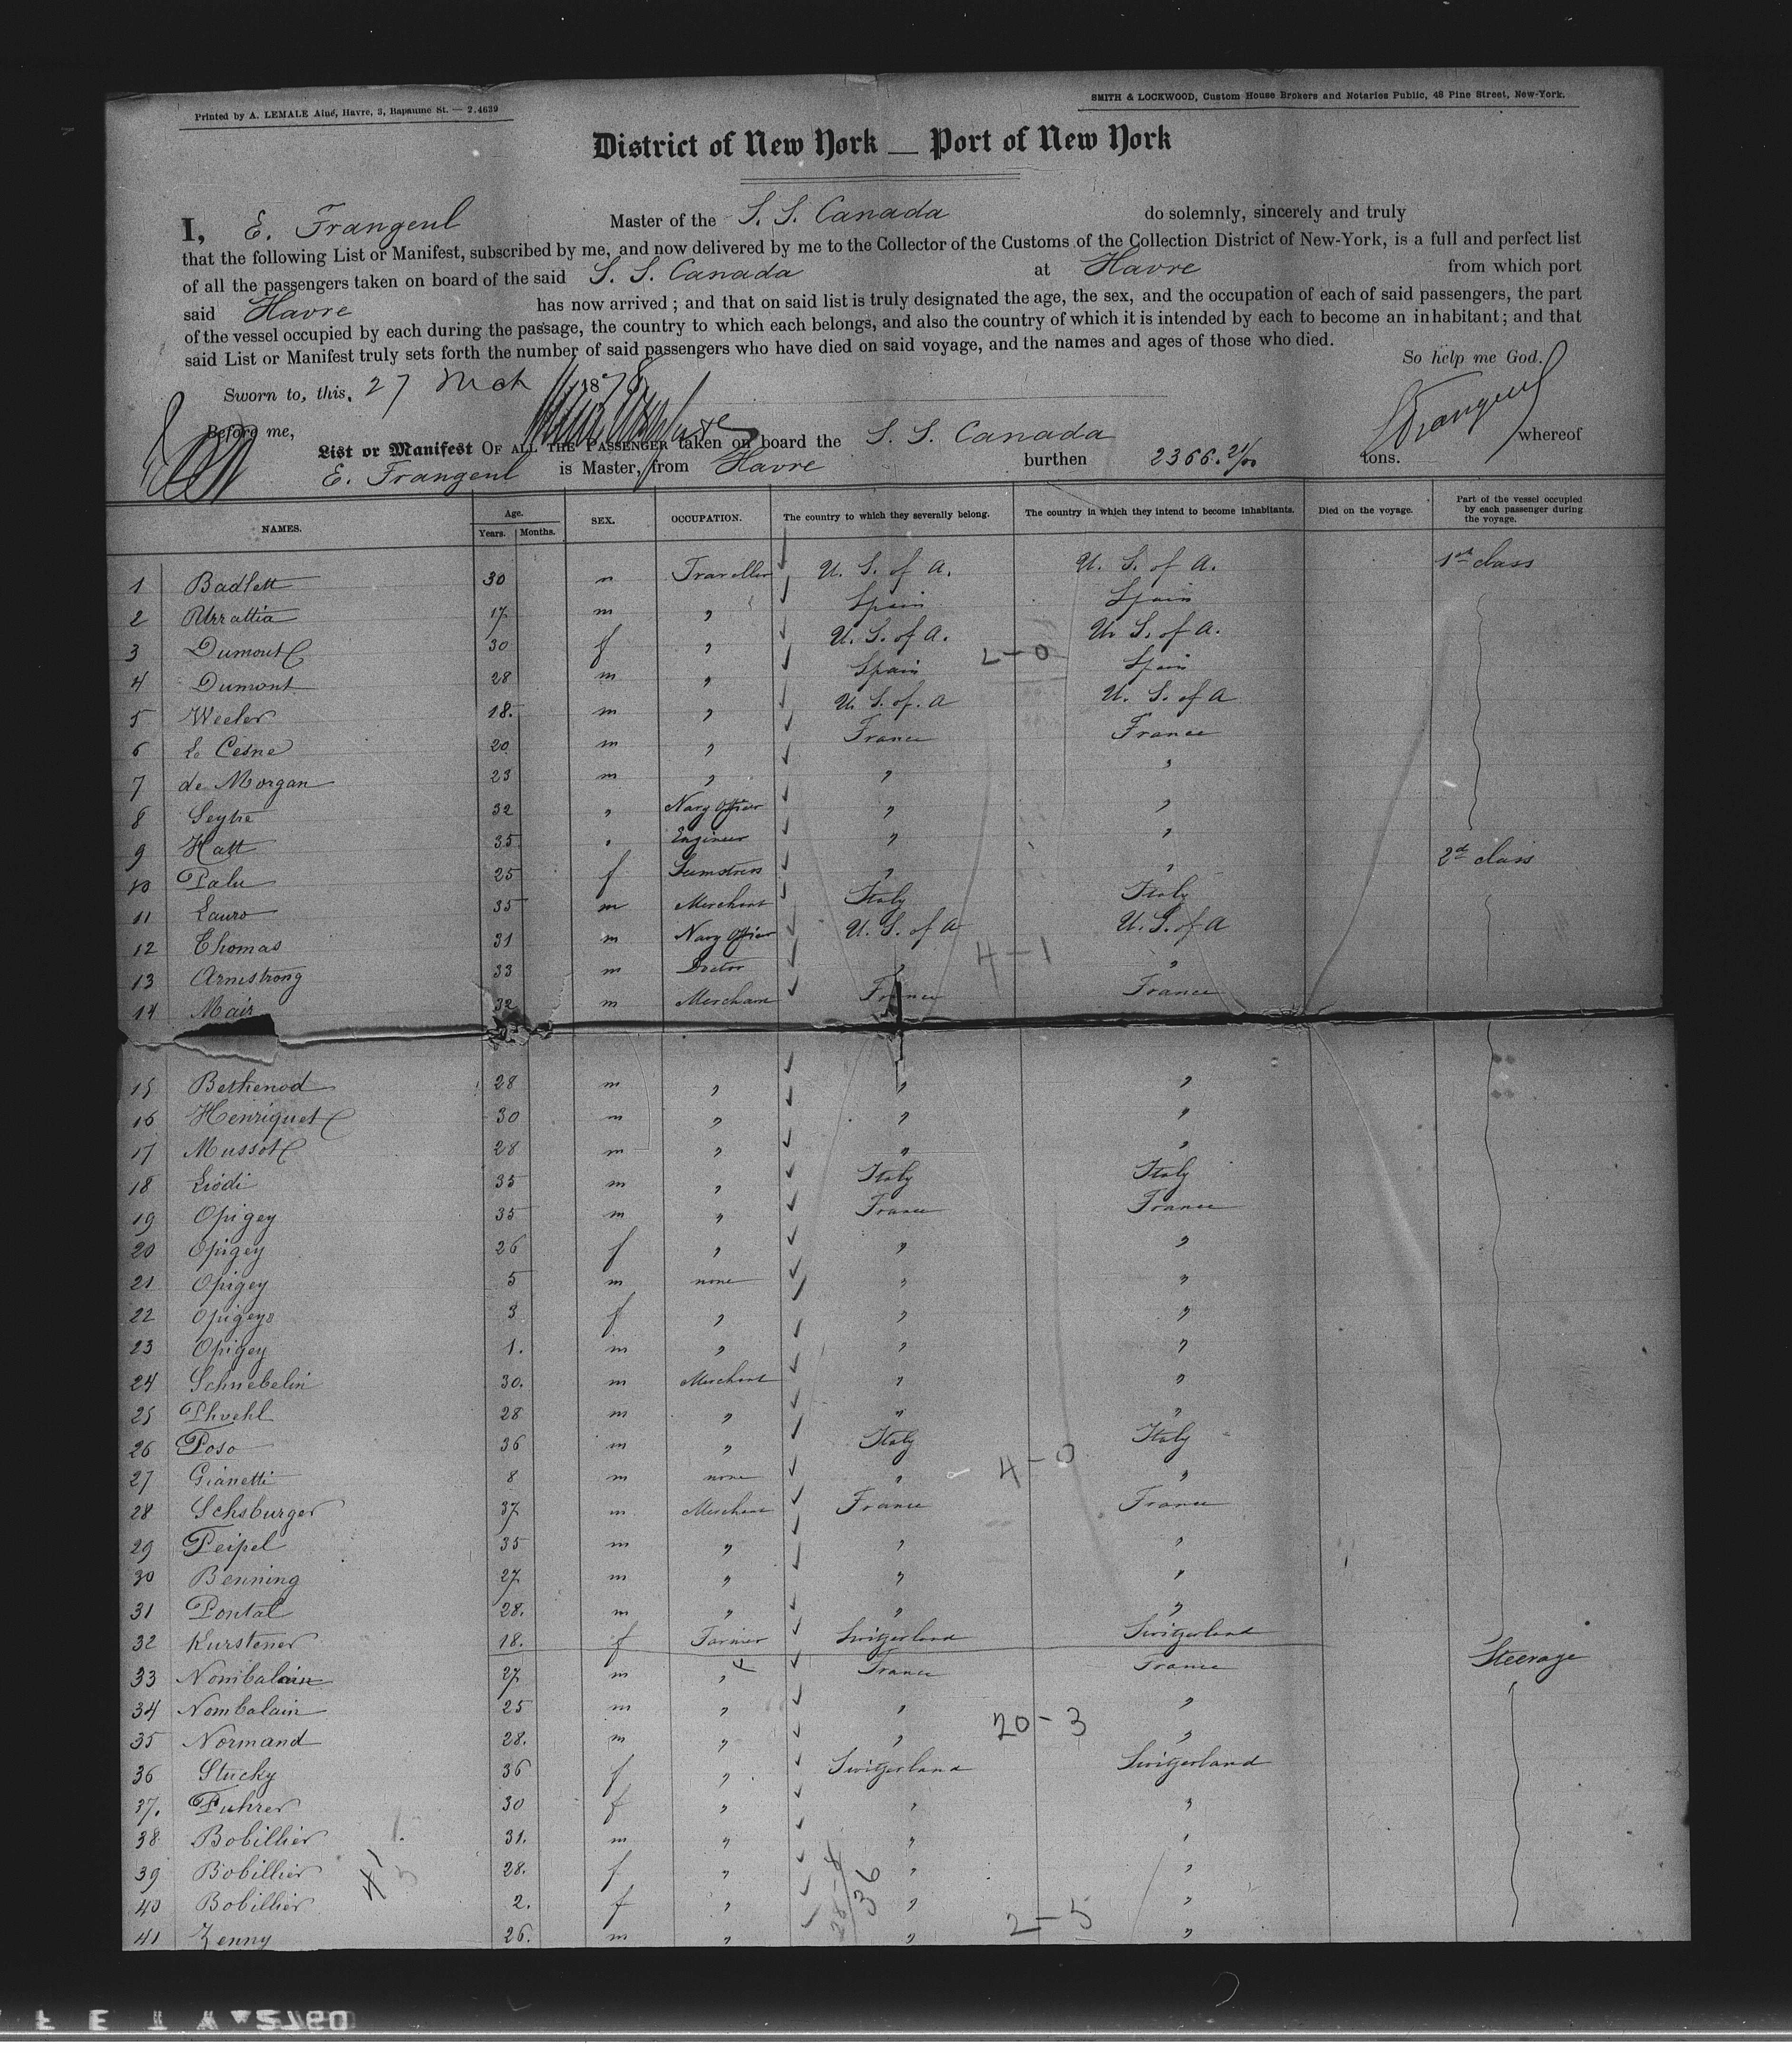 Printed by A. LEMALE Aîné, Havre, 3, Bapaume St. — 2.4639
SMITH & LOCKWOOD, Custom House Brokers and Notaries Public, 48 Pine Street, New-York.
District of New York — Port of New York
I, E. Frangeul Master of the S. S. Canada do solemnly, sincerely and truly
that the following List or Manifest, subscribed by me, and now delivered by me to the Collector of the Customs of the Collection District of New-York, is a full and perfect list
of all the passengers taken on board of the said S. S. Canada at Havre from which port
said Havre has now arrived; and that on said list is truly designated the age, the sex, and the occupation of each of said passengers, the part
of the vessel occupied by each during the passage, the country to which each belongs, and also the country of which it is intended by each to become an inhabitant; and that
said List or Manifest truly sets forth the number of said passengers who have died on said voyage, and the names and ages of those who died.
So help me God.
Sworn to, this 27 Mch 1878
Before me,
Frangeul
List or Manifest OF ALL THE PASSENGER taken on board the S. S. Canada whereof
E. Frangeul is Master, from Havre burthen 2366. 21/00 tons.
NAMES. Age. Years. Months. SEX. OCCUPATION. The country to which they severally belong. The country in which they intend to become inhabitants. Died on the voyage. Part of the vessel occupied by each passenger during the voyage.
1 Badlett 30 m Traveller U. S. of A. U. S. of A. 1st class
2 Urrattia 17 m " Spain Spain
3 Dumont 30 f " U. S. of A. U. S. of A.
2-0
4 Dumont 28 m " Spain Spain
5 Weeler 18. m " U. S. of. A U. S. of A
6 Le Cesne 20 m " France France
7 de Morgan 23 m " " "
8 Seyhe 32 " Navy Officer " "
9 Hatt 35 " Engineer " "
10 Palu 25 f Seamstress " " 2d class
11 Lauro 35 m Merchant Italy Italy
12 Thomas 31 m Navy Officer U. S. of A U. S. of A
4-1
13 Armstrong 33 m Doctor " "
14 Mair 32 m Merchant France France
15 Bethenod 28 m " " "
16 Henriquet 30 m " " "
17 Mussot 28 m " " "
18 Liodi 35 m " Italy Italy
19 Opigey 35 m " France France
20 Opigey 26 f " " "
21 Opigey 5 m none " "
22 Opigeys 3 f " " "
23 Opigey 1. m " " "
24 Schnebelin 30. m Merchant " "
25 Phvehl 28 m " " "
26 Poso 36 m " Italy Italy
4-0
27 Gianetti 8 m none " "
28 Schsburger 37 m Merchant France France
29 Peipel 35 m " " "
30 Benning 27 m " " "
31 Pontal 28. m " " "
32 Kurstener 18. f Farmer Switzerland Switzerland
33 Nombalain 27 m " France France Steerage
34 Nombalain 25 m " " "
20-3
35 Normand 28. m " " "
36 Stucky 36 f " Switzerland Switzerland
37. Fuhrer 30 f " " "
38 Bobillier 31. m " " "
39 Bobillier 28. f " " "
40 Bobillier 2. f " " "
28-4
36
2-5
41 Zenny 26. m " " "